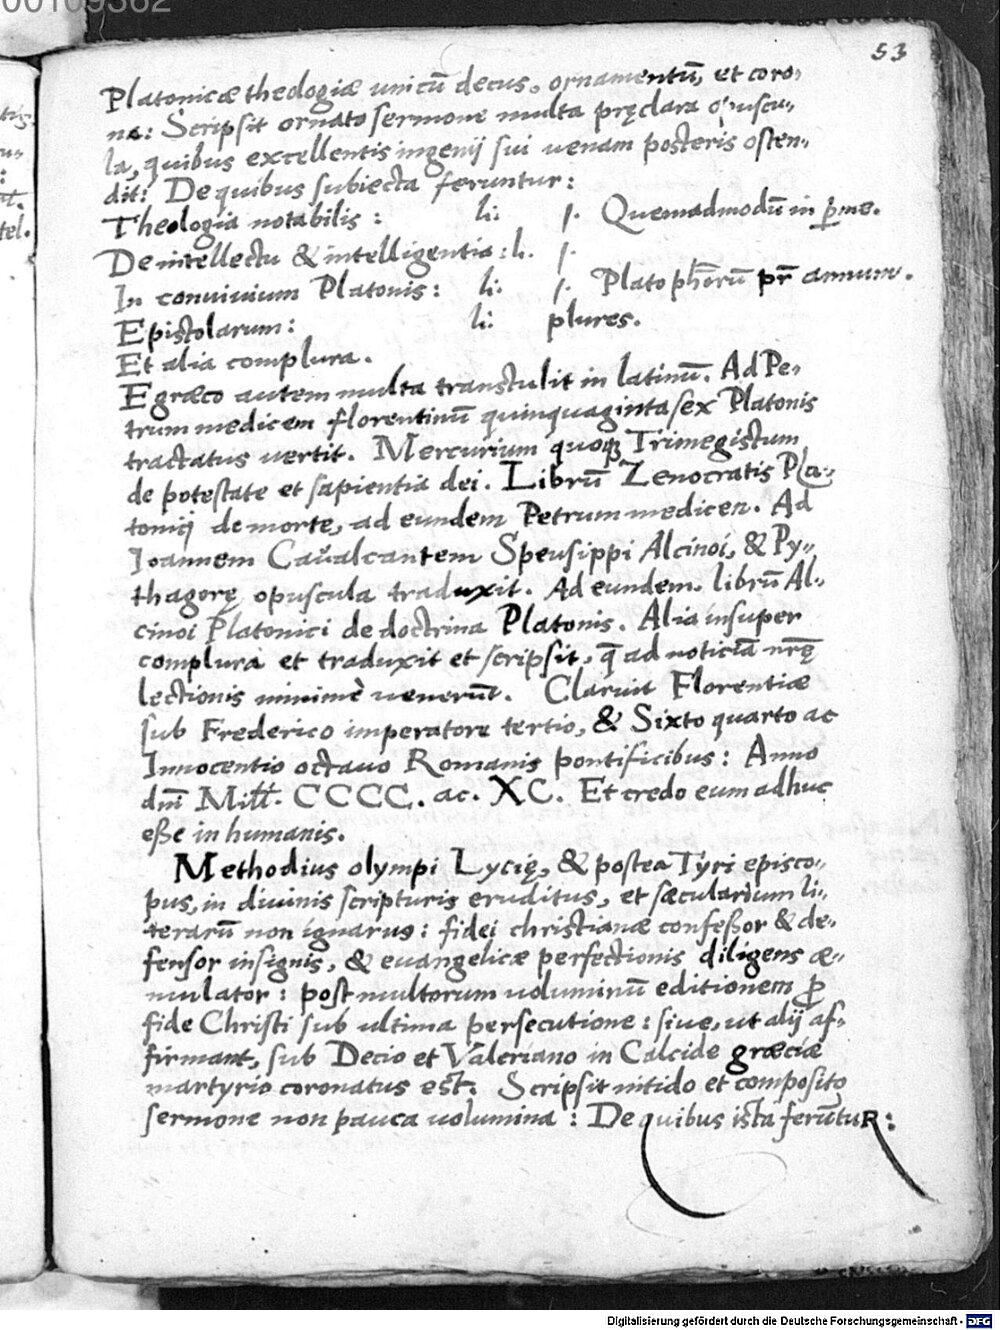 00109362
53
Platonicæ theologiæ unicũ decus, ornamentũ, et coro,
na: Scripsit ornato sermone multa pręclara opuscu,,
la, quibus excellentis ingenij sui venam posteris osten,,
dit: De quibus subiecta feruntur:
Theologia notabilis : li: 1. Quemadmodũ in p̱me.
De intellectu & intelligentia : l. 1.
In convivium Platonis : li: 1. Plato ph̄orũ pr̄ annum.
Epistolarum: li: plures.
Et alia complura.
E græco autem multa transtulit in latinũ. Ad Pe,
trum medicem florentinũ quinquaginta sex Platonis
tractatus vertit. Mercurium quoqꝫ Trimegistum
de potestate et sapientia dei. Librũ Zenocratis Pla,,
tonicj de morte, ad eundem Petrum medicen. Ad
Ioannem Caualcantem Speusippi Alcinoi, & Py,,
thagorę opuscula traduxit. Ad eundem. librũ Al,,
cinoi Platonici de doctrina Platonis. Alia insuper
complura et traduxit et scripsit, q̃ ad noticiã nrę̃
lectionis minime venerũt. Claruit Florentiæ
sub Frederico imperatore tertio, & Sixto quarto ac
Innocentio octavo Romanis pontificibus: Anno
dnĩ Mill. CCCC. ac. XC. Et credo eum adhuc
eße in humanis.
Methodius olympi Lycię, & postea Tyri episco,,
pus, in divinis scripturis eruditus, et sæcularium li,,
terarũ non ignarus: fidei christianæ confeßor & de,
fensor insignis, & evangelicæ perfectionis diligens æ,,
mulator: post multorum voluminũ editionem ꝓ
fide Christi sub ultima persecutione: sive, ut alij af,,
firmant, sub Decio et Valeriano in Calcide græciæ
martyrio coronatus est. Scripsit nitido et composito
sermone non pauca volumina : De quibus ista ferũtur:
tel.
Digitalisierung gefördert durch die Deutsche Forschungsgemeinschaft - DFG